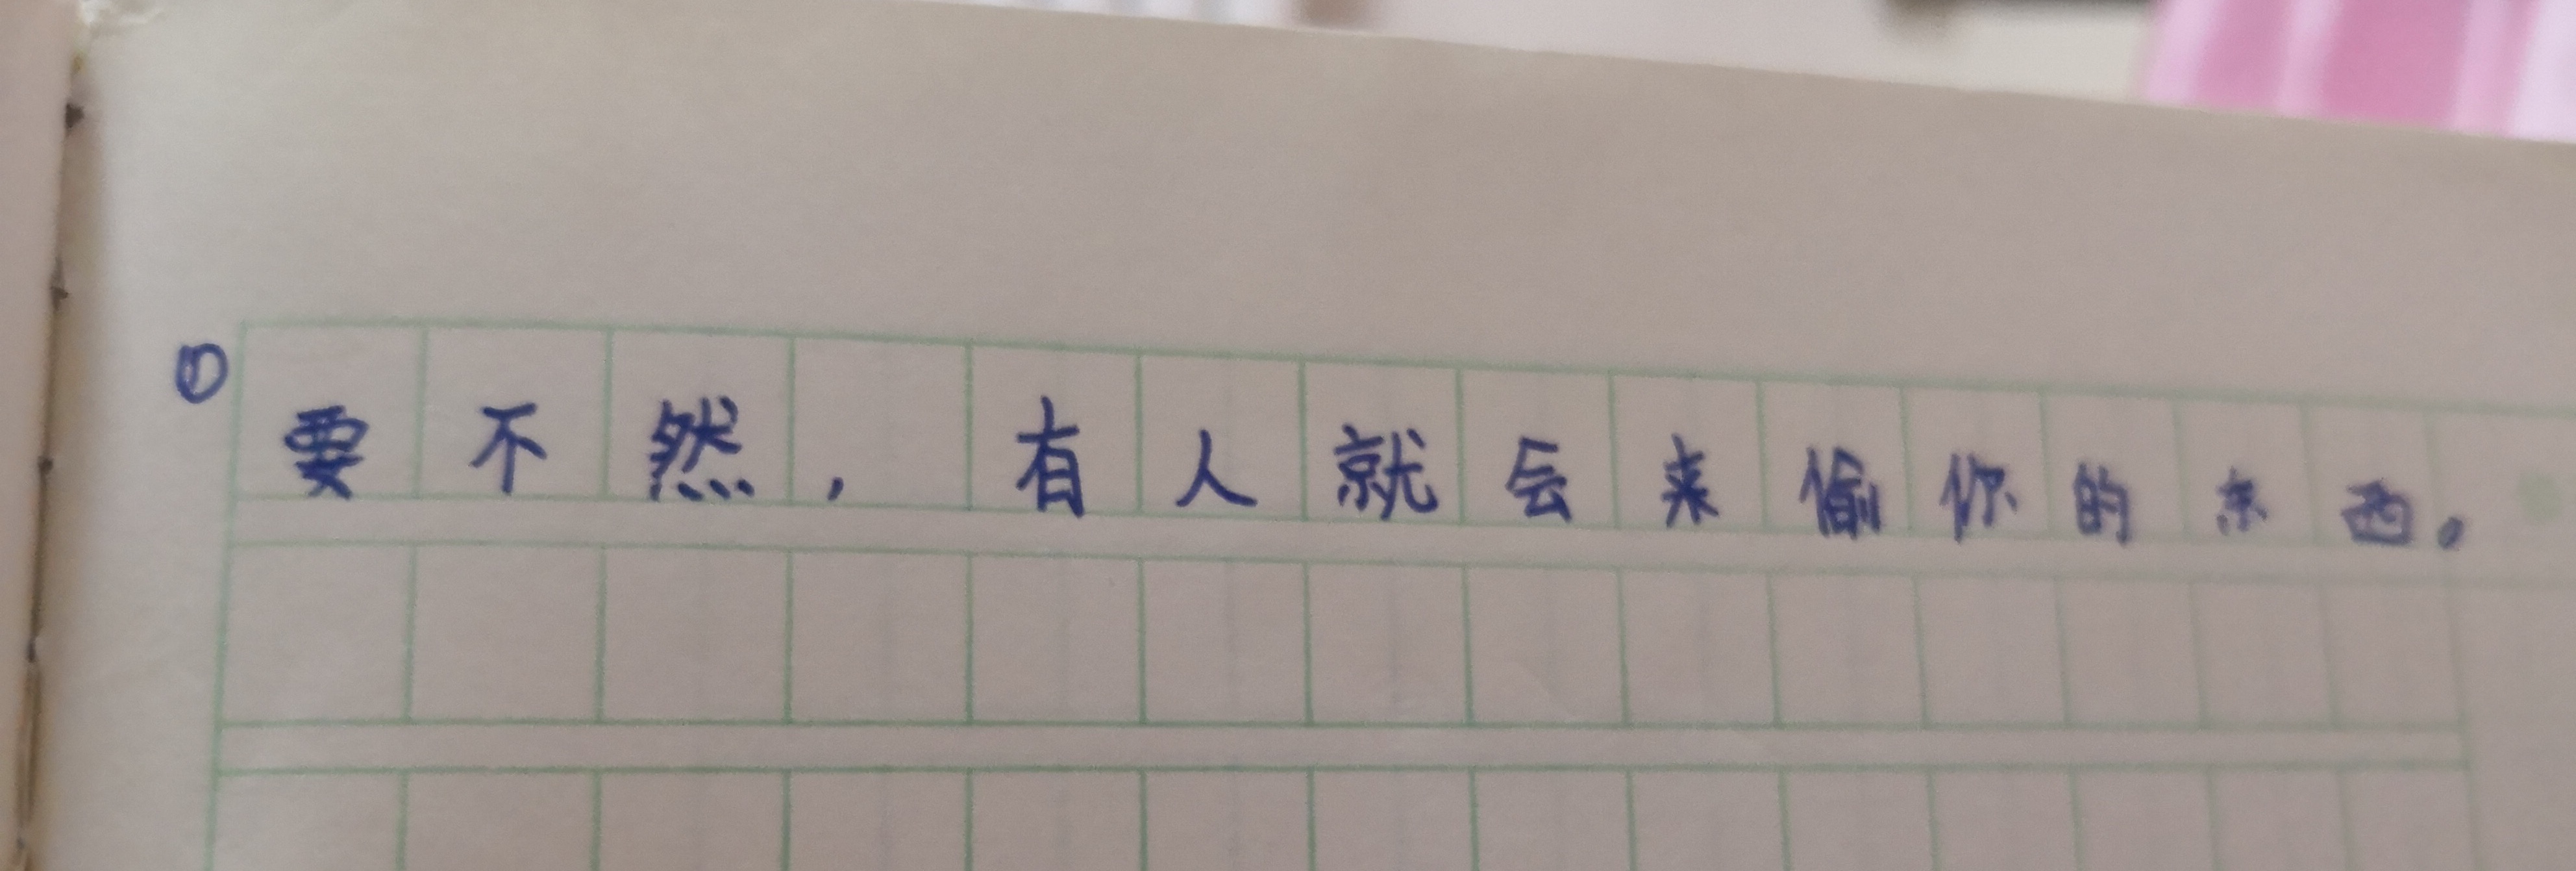 ① 要不然，有人就会来偷你的东西。